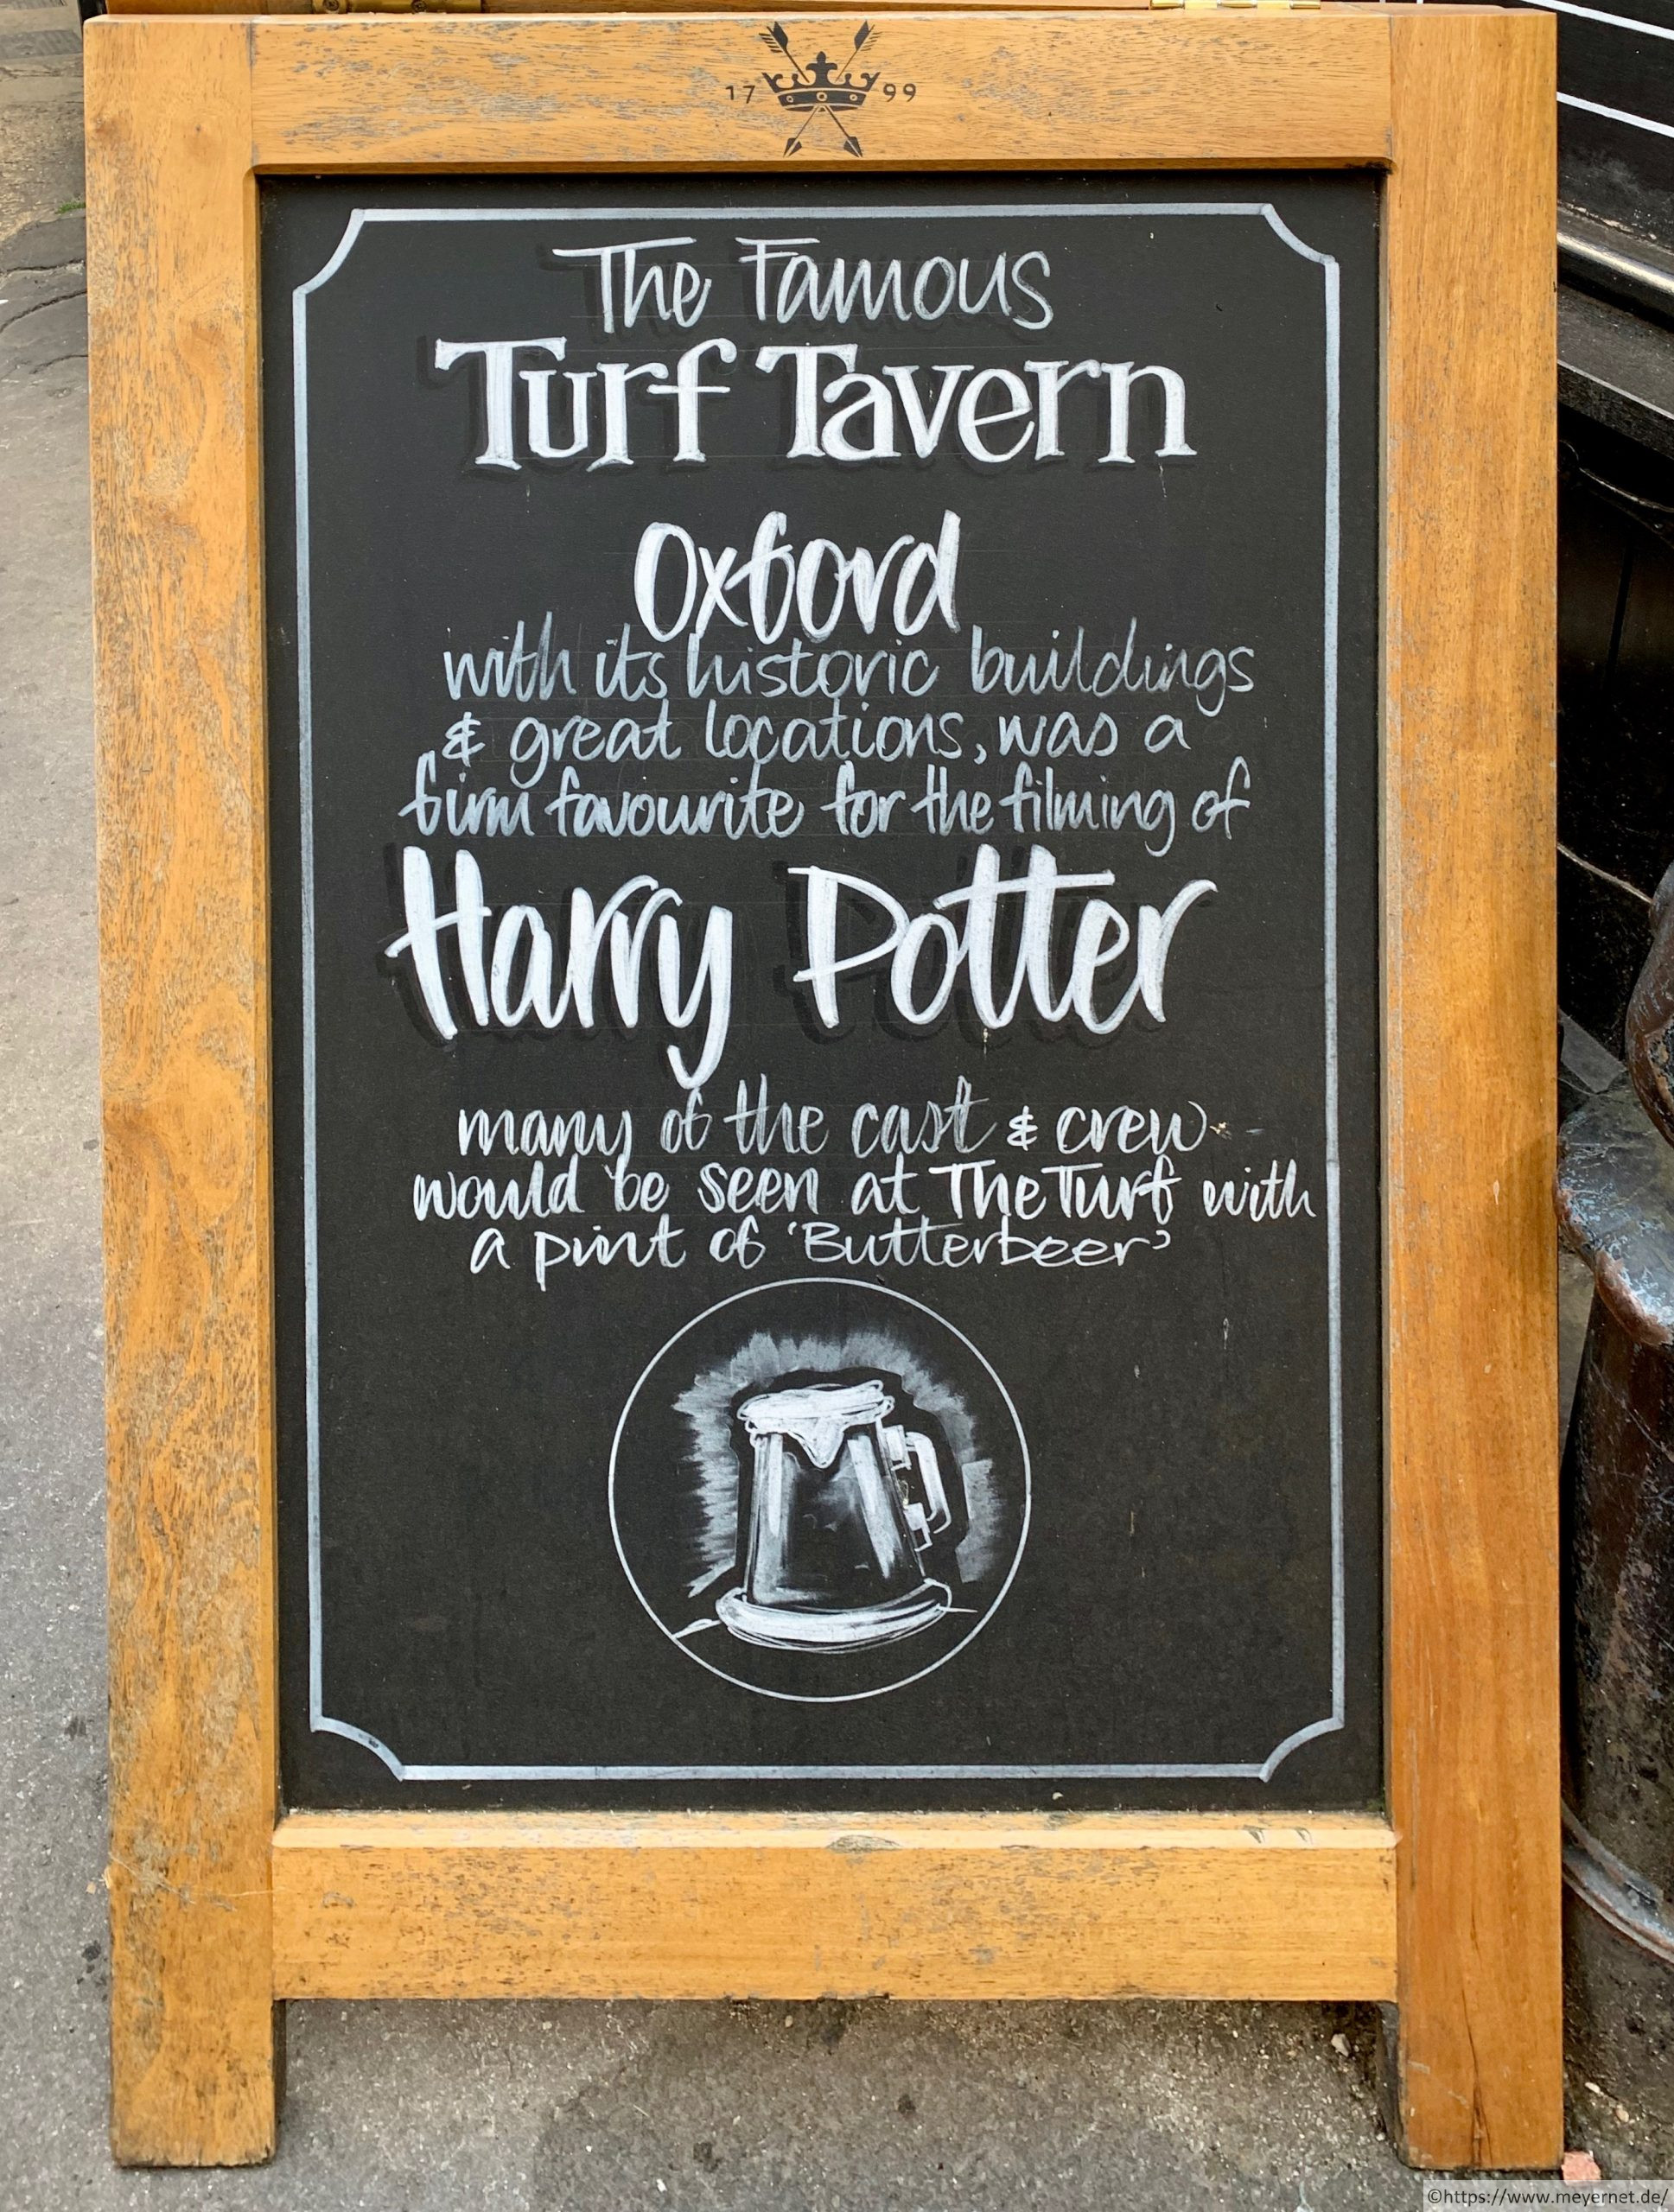 17 99
The Famous
Turf Tavern
Oxford
with its historic buildings
& great locations, was a
firm favourite for the filming of
Harry Potter
many of the cast & crew
would be seen at The Turf with
a pint of 'Butterbeer'
©https://www.meyernet.de/